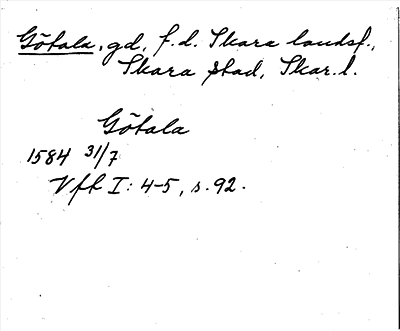 Götala, gd, f.d. Skara landsf.,
Skara stad, Skar. l.
Götala
1584 31/7
Vfh I: 4-5, s. 92.